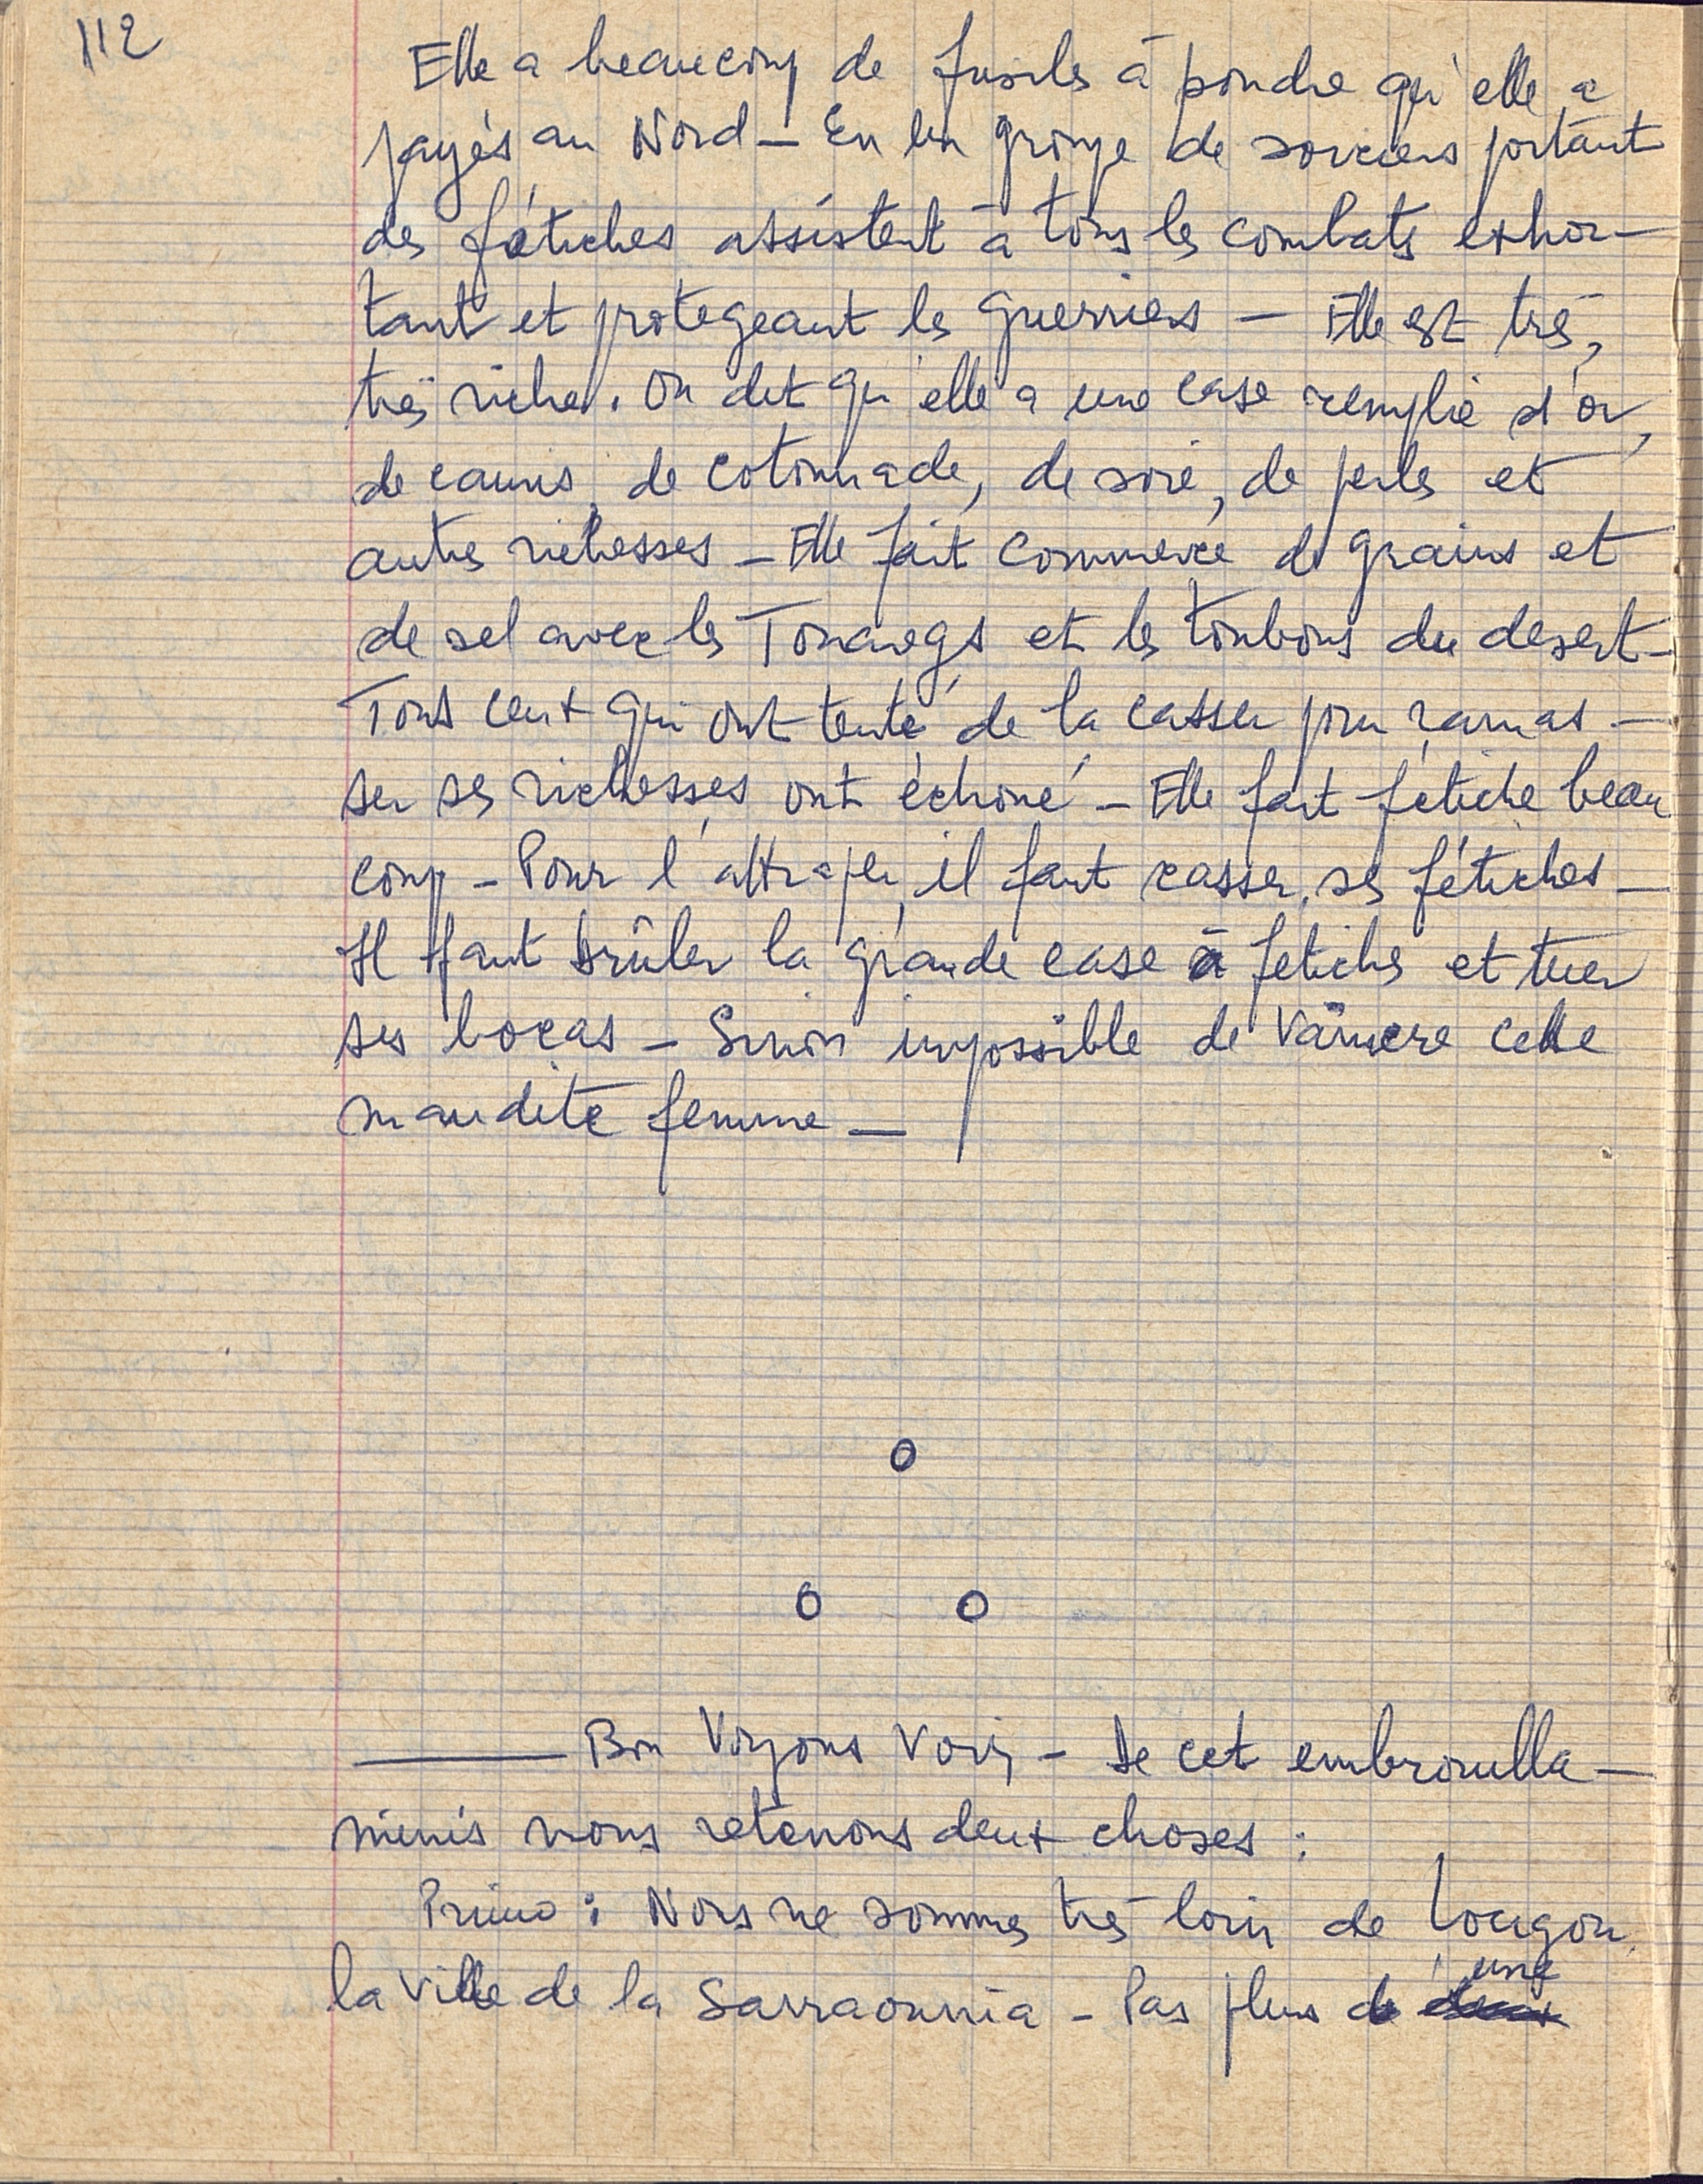 112
Elle a beaucoup de fusils à poudre qu'elle a
payés au Nord — En un groupe de sorciers portant
des fétiches assistent à tous les combats exhor-
tant et protegeant les guerriers — Elle est très,
très riche. On dit qu'elle a une case remplie d'or,
de cauris, de cotonnade, de soie, de perles et
autres richesses — Elle fait commerce de grains et
de sel avec les Touaregs et les Toubous du desert —
Tous ceux qui ont tenté de la casser pour ramas-
ser ses richesses ont échoué — Elle fait fétiche beau
coup — Pour l'attraper, il faut casser ses fétiches —
Il faut brûler la grande case à fetiches et tuer
ses bocas — Sinon impossible de vaincre cette
maudite femme —
o
o o
——— Bon Voyons Voir — De cet embrouilla-
minis nous retenons deux choses :
Primo : Nous ne sommes très loin de Lougou,
une
la ville de la Sarraounia — Pas plus de deux